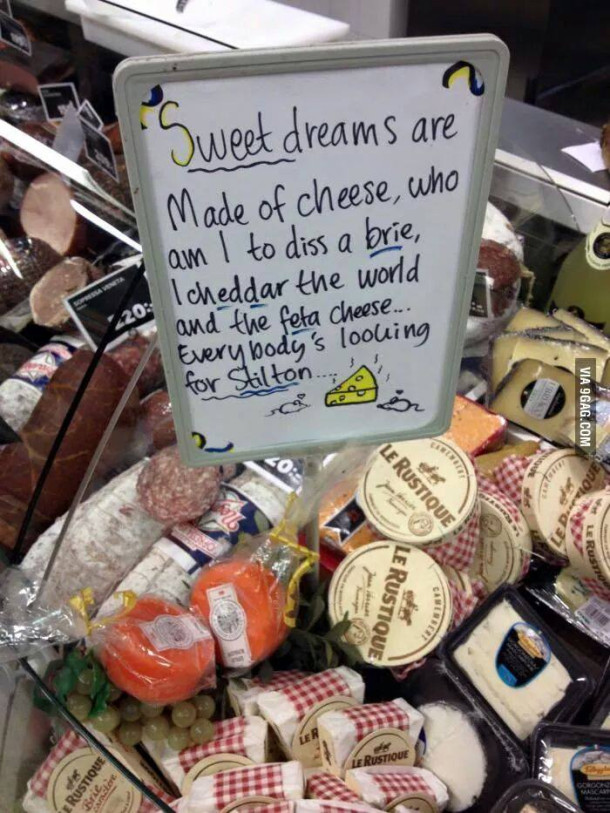 Sweet dreams are
Made of cheese, who
am I to diss a brie,
I cheddar the world
and the feta cheese...
Everybody's looking
for Stilton....
VIA 9GAG.COM
SOPRESSA VENETA
220:
20:
CAMEMBERT
LE RUSTIQUE
CAMEMBERT
LE RUSTIQUE
LE RUSTIQUE
LE RUSTIQUE
GORGONZ
MASCAR